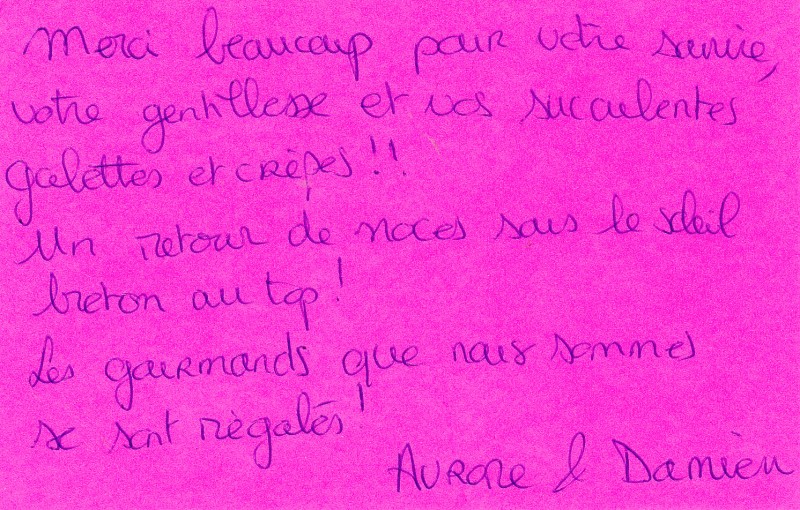 Merci beaucoup pour votre sourire,
votre gentillesse et vos succulentes
galettes et crêpes !!
Un retour de noces sous le soleil
breton au top !
Les gourmands que nous sommes
se sont régalés !
Aurore & Damien